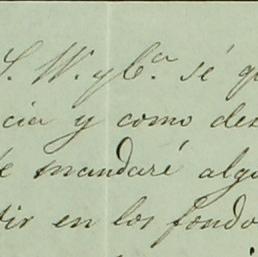 S. W. y Cª. sé qu
cia y como des
te mandaré algu
tir en los fondo